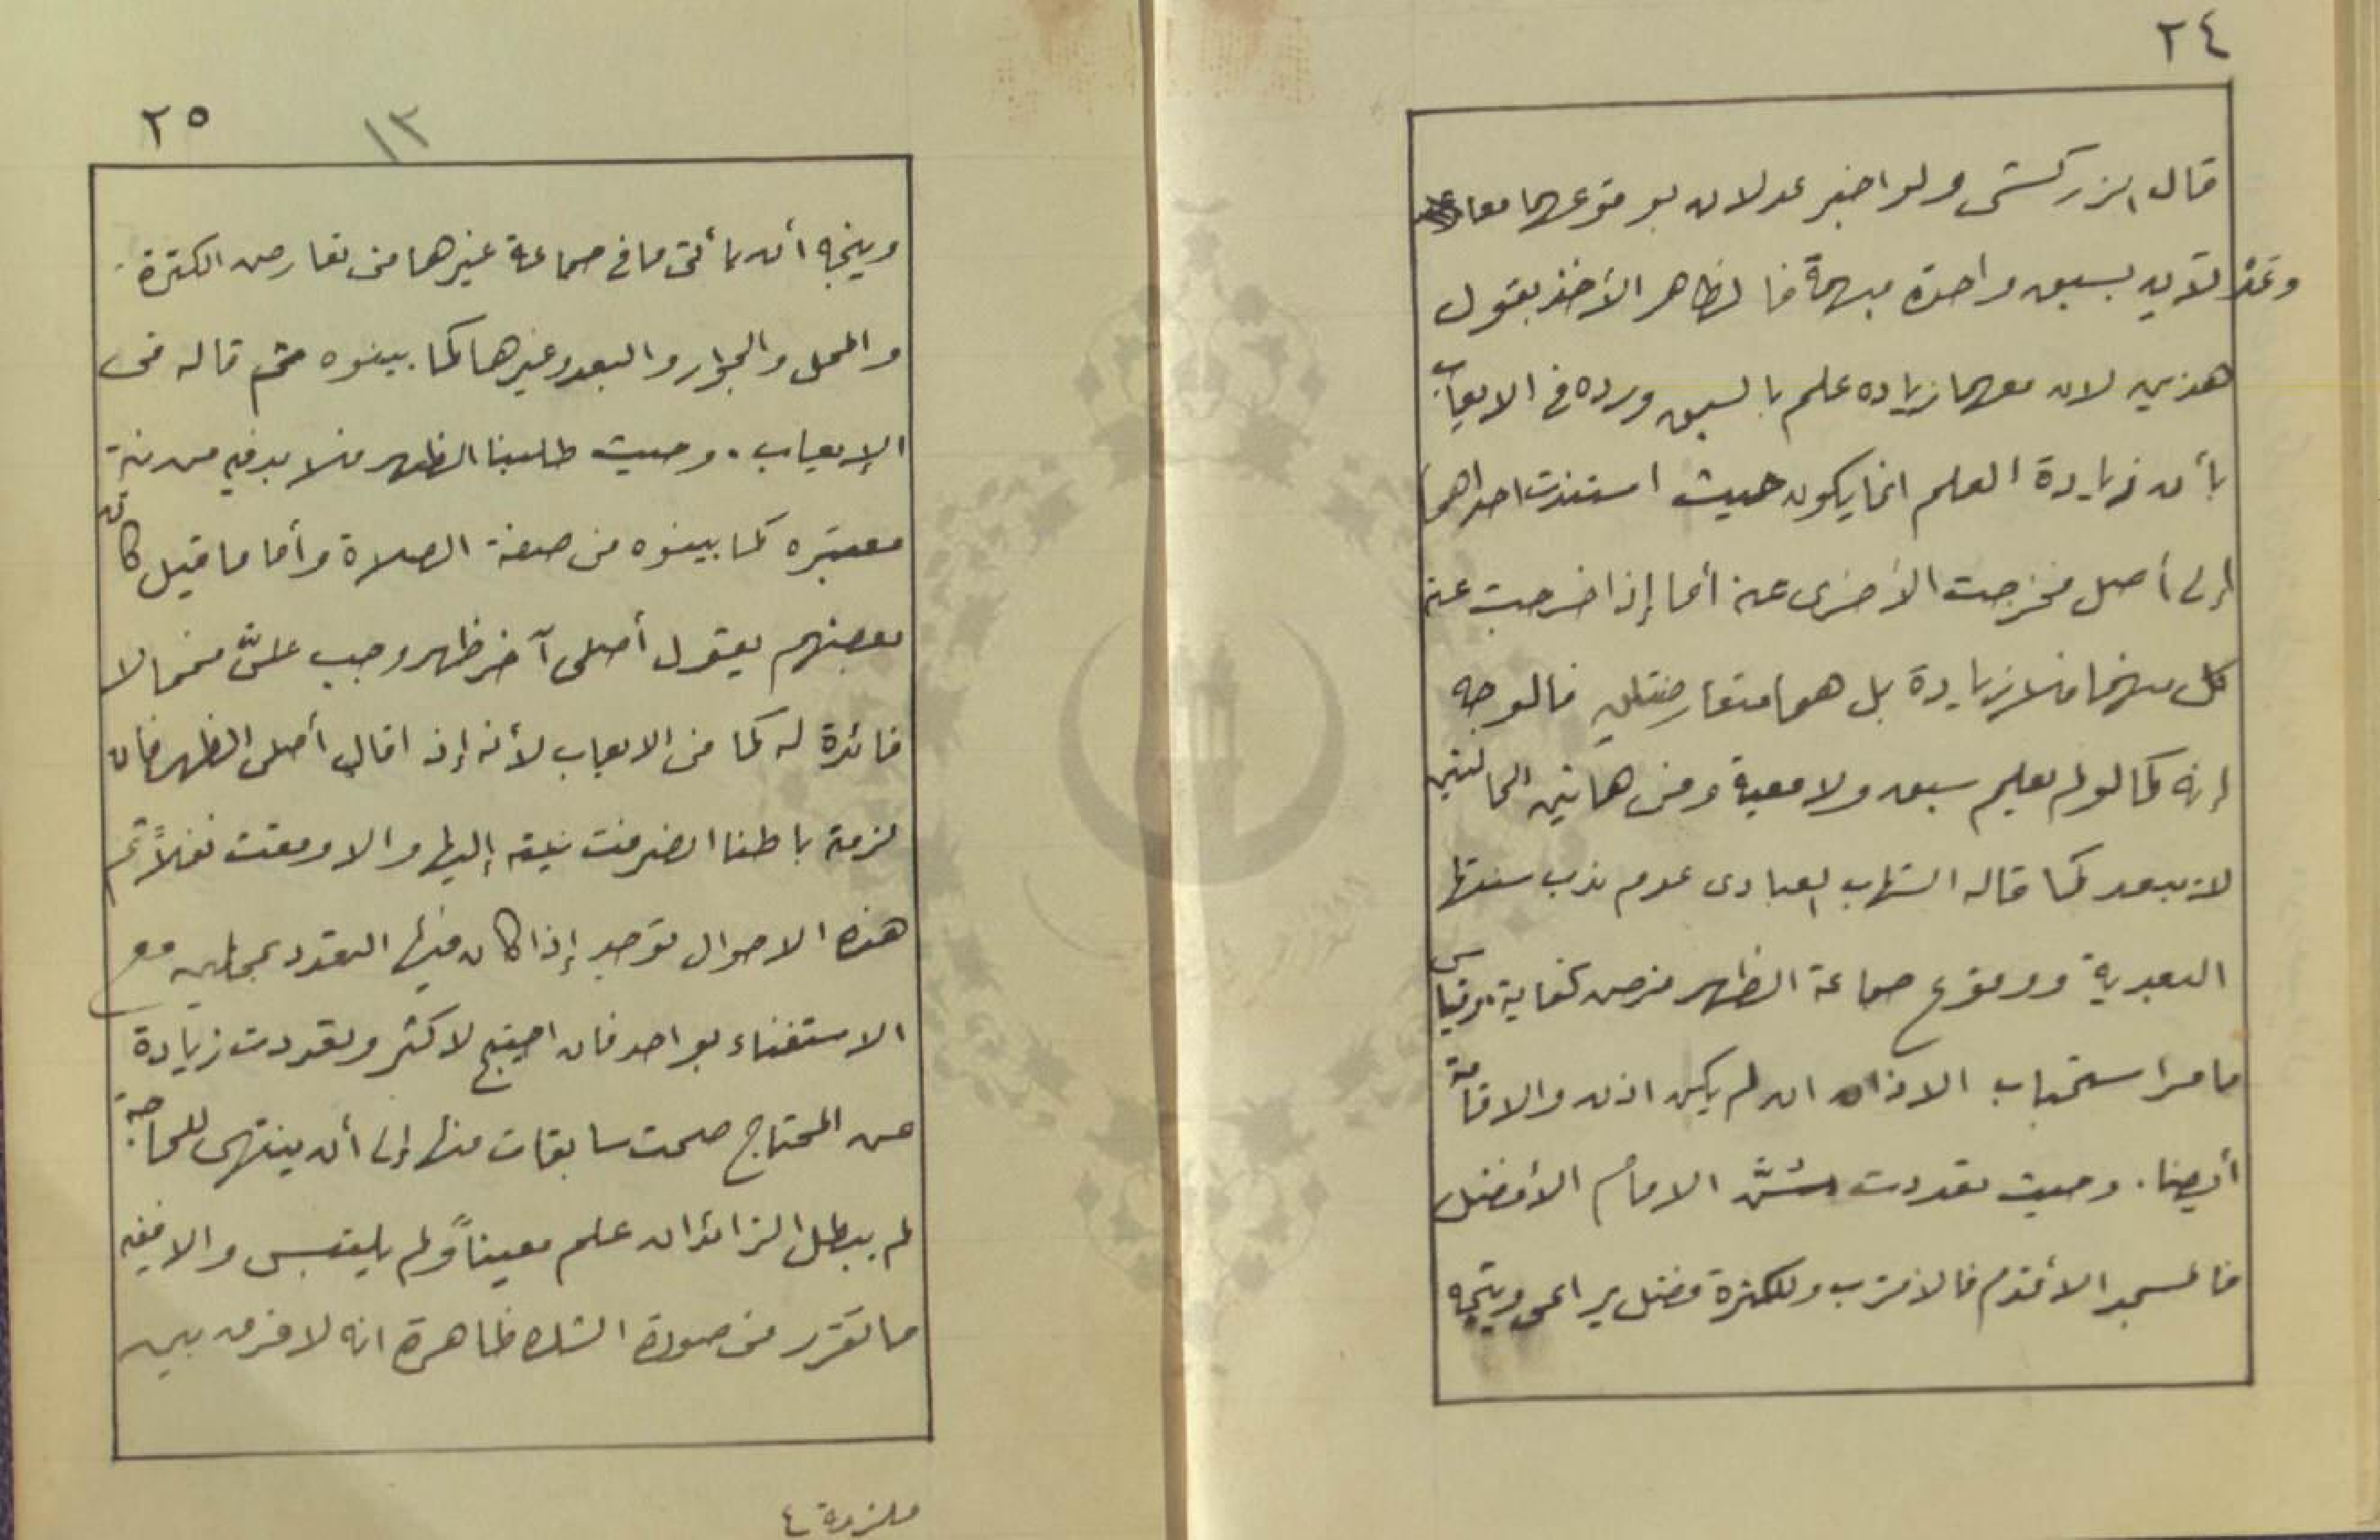 ٢٤
قال الزركشى ولو اخبر عدلان بوقوعهما معا
وعدلان بسبق واحدة مبهمة فالظاهر الأخذ بقول
هذين لان معهما زياده علم بالسبق ورده فى الايعاب
بأن زيادة العلم انما يكون حيث استندت احداهما
إلى أصل فخرجت الأخرى عنه أما إذا خرجت عنه
كل منهما فلا زيادة بل هما متعارضتان فالوجه
إنه كما لو لم يعلم سبق ولا معية وفى هاتين الحالتين
لا يبعد كما قاله الشهاب العبادى عدم ندب سنتها
البعدية ووقوع جماعة الظهر فرض كفاية وقياس
ما مر استحباب الاذان ان لم يكن اذن والاقامة
أيضا . وحيث تعددت سُنَّ الامام الأفضل
فالمسجد الأقدم فالاقرب وللكثرة فضل يراعى ويتجه
٢٥
١٣
ويتجه أن يأتى ما فى جماعة غيرها من تعارض الكثرة
والمحل والجوار والبعد وغيرها كما بينوه ثم قاله فى
الإيعاب . وحيث طلبنا الظهر فلا بد فيه من نية
معتبره كما بينوه فى صفة الصلاة وأما ما قيل كان
بعضهم يقول أصلى آخر ظهر وجب علىَّ فمما لا
فائدة له كما فى الايعاب لأنه إذا قال أصلى الظهر فان
لزمة باطنا انصرفت نيته إليها والا وقعت نفلاً ثم
هذه الاحوال توجد إذا كان فيها التعدد بمحلين مع
الاستغناء بواحد فان احتيج لاكثر وتعددت زيادة
عن المحتاج صحت سابقات منها إلى أن ينتهى للحاجة
لم يبطل الزائد ان علم معيناً ولم يلتبس والا ففيه
ما تقرر فى صورة الشك ظاهرة انه لا فرق بين
ملزمة ٤